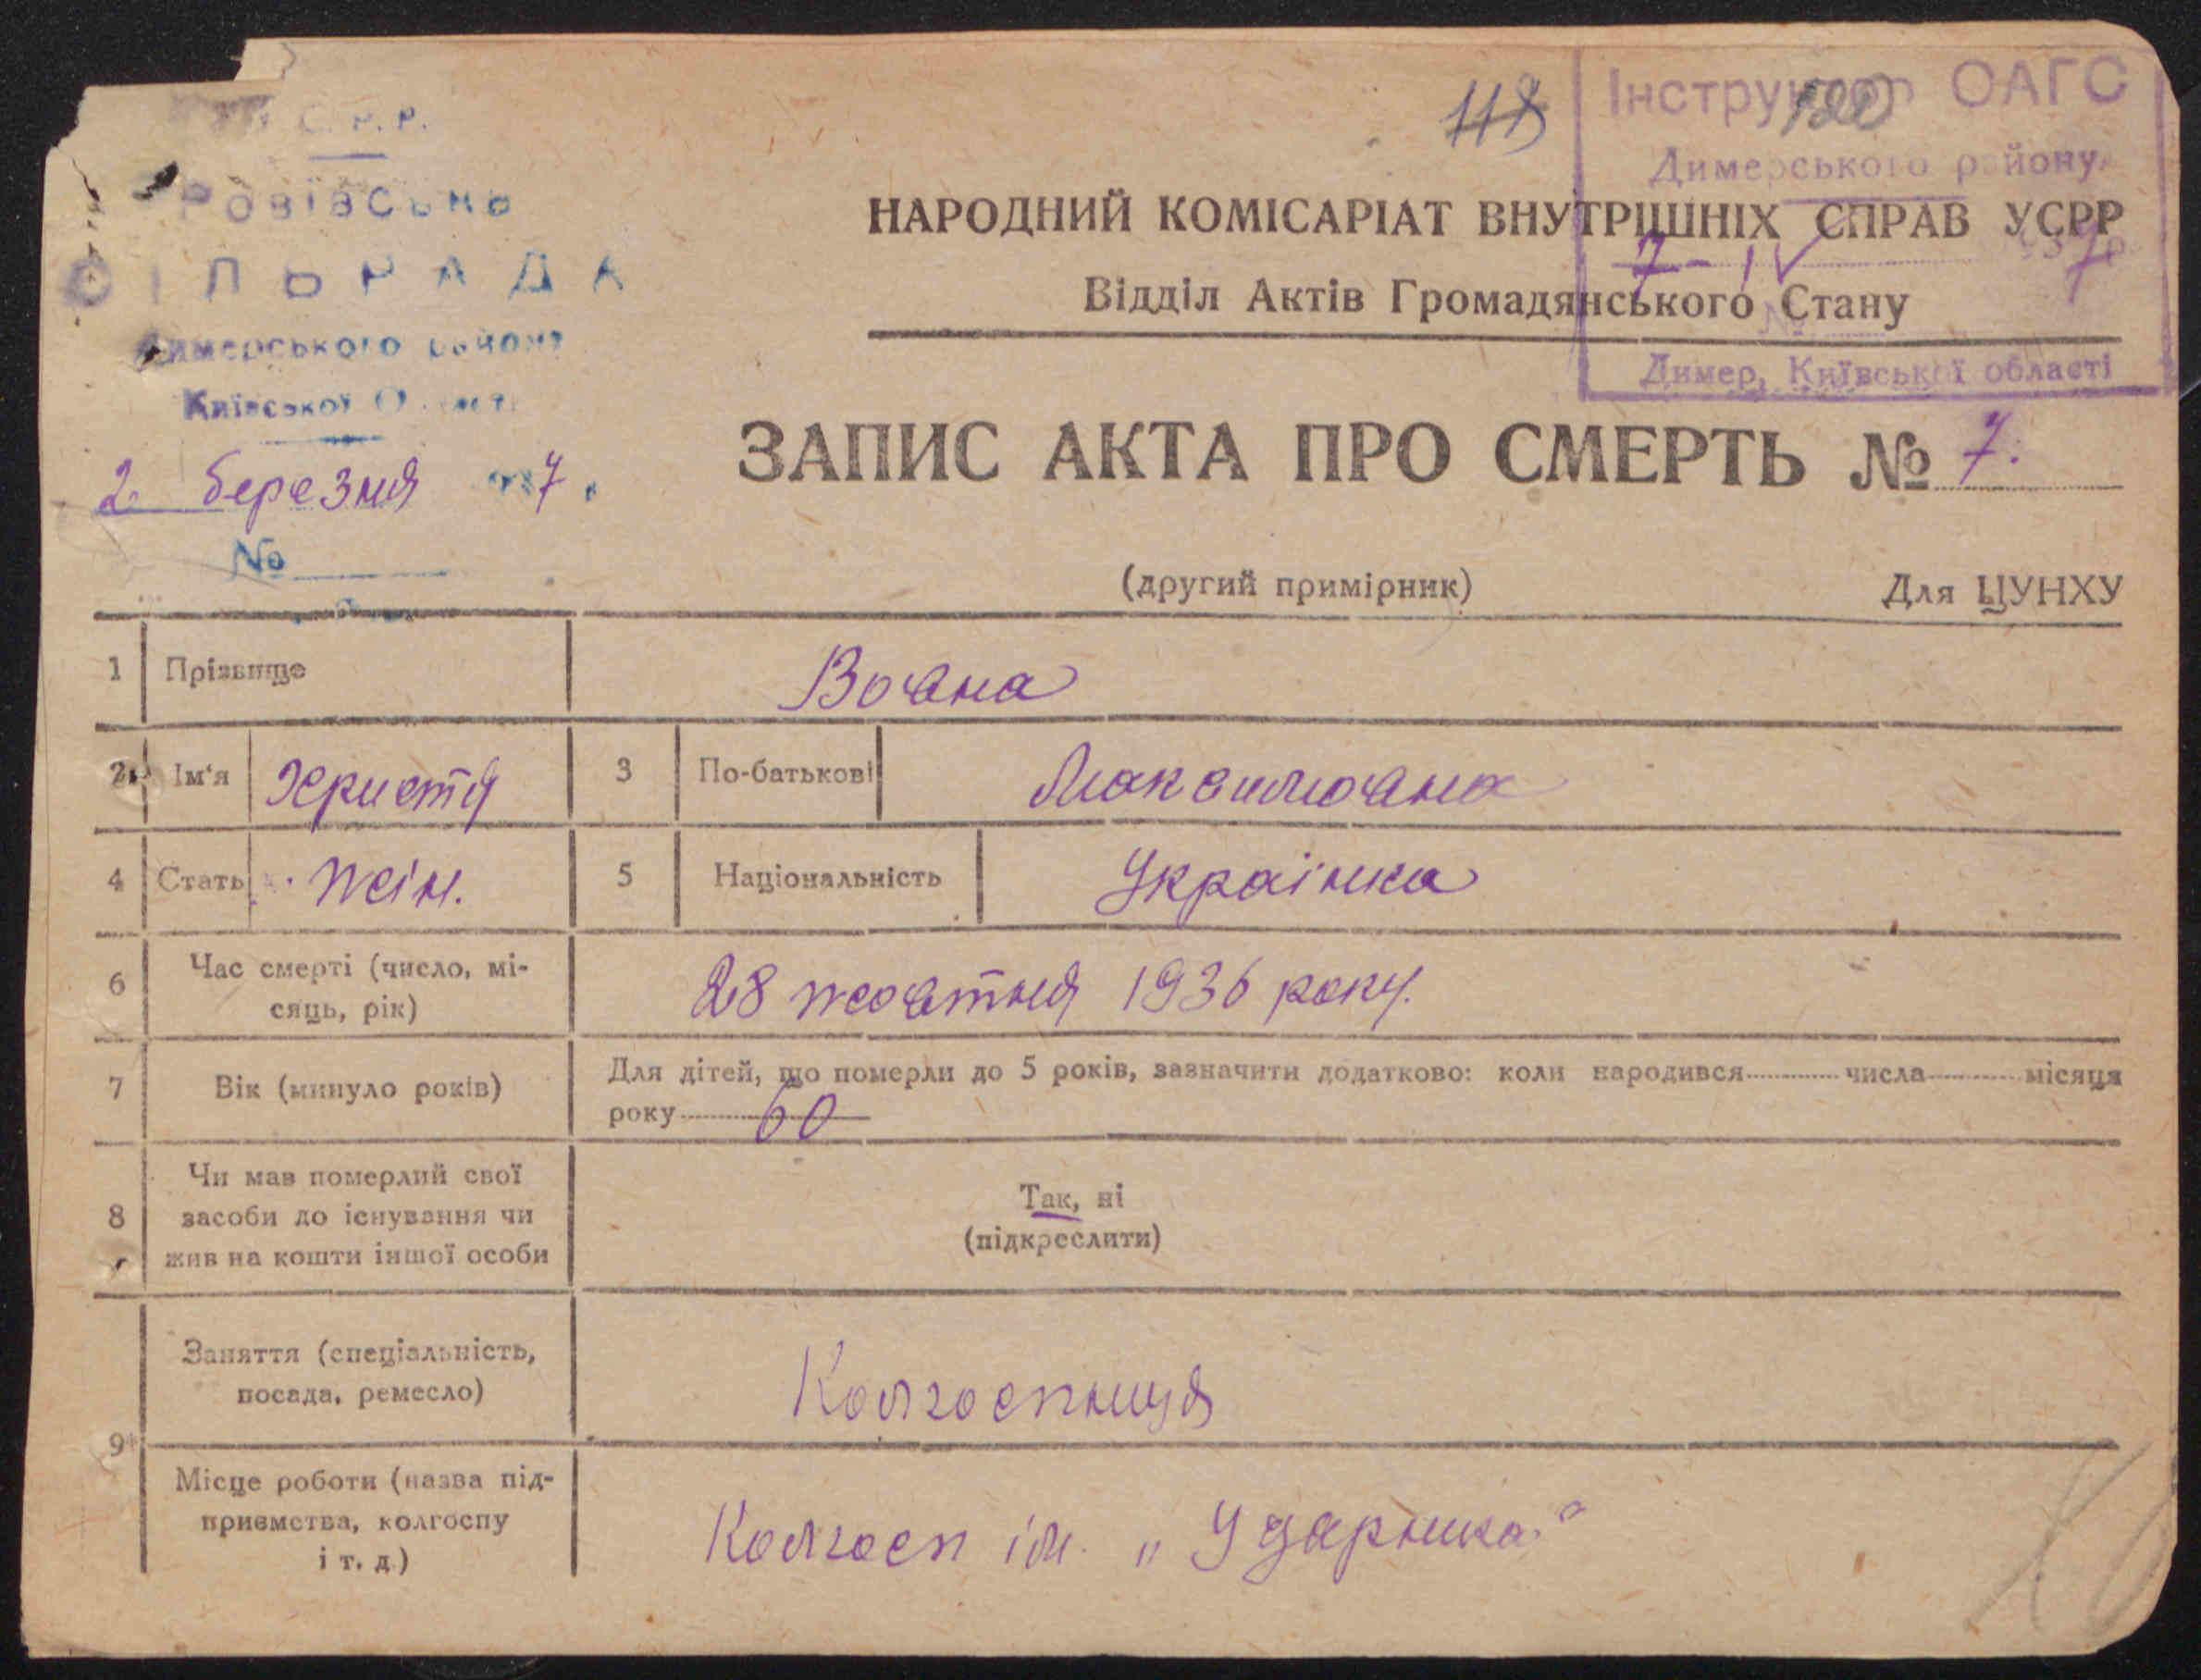 118
120
Інструктор ОАГС
Димерського району
7 - IV 1937 р.
№
Димер, Київської області
С. Р. Р.
СІЛЬРАДА
Димерського району
Київської
2 березня 1937
№
НАРОДНИЙ КОМІСАРІАТ ВНУТРІШНІХ СПРАВ УСРР
Відділ Актів Громадянського Стану
ЗАПИС АКТА ПРО СМЕРТЬ № 7.
(другий примірник)
Для ЦУНХУ
1 Прізвище Вовна
2 Ім'я Христя 3 По-батькові Максимовна
4 Стать жін. 5 Національність Українка
6 Час смерті (число, мі-
сяць, рік) 28 жовтня 1936 року.
7 Вік (минуло років) Для дітей, що померли до 5 років, зазначити додатково: коли народився числа місяця
року 60
8 Чи мав померлий свої
засоби до існування чи
жив на кошти іншої особи
Так, ні
(підкреслити)
9 Заняття (спеціальність,
посада, ремесло) Колгоспниця
Місце роботи (назва під-
приємства, колгоспу
і т. д.) Колгосп ім. „Ударника"